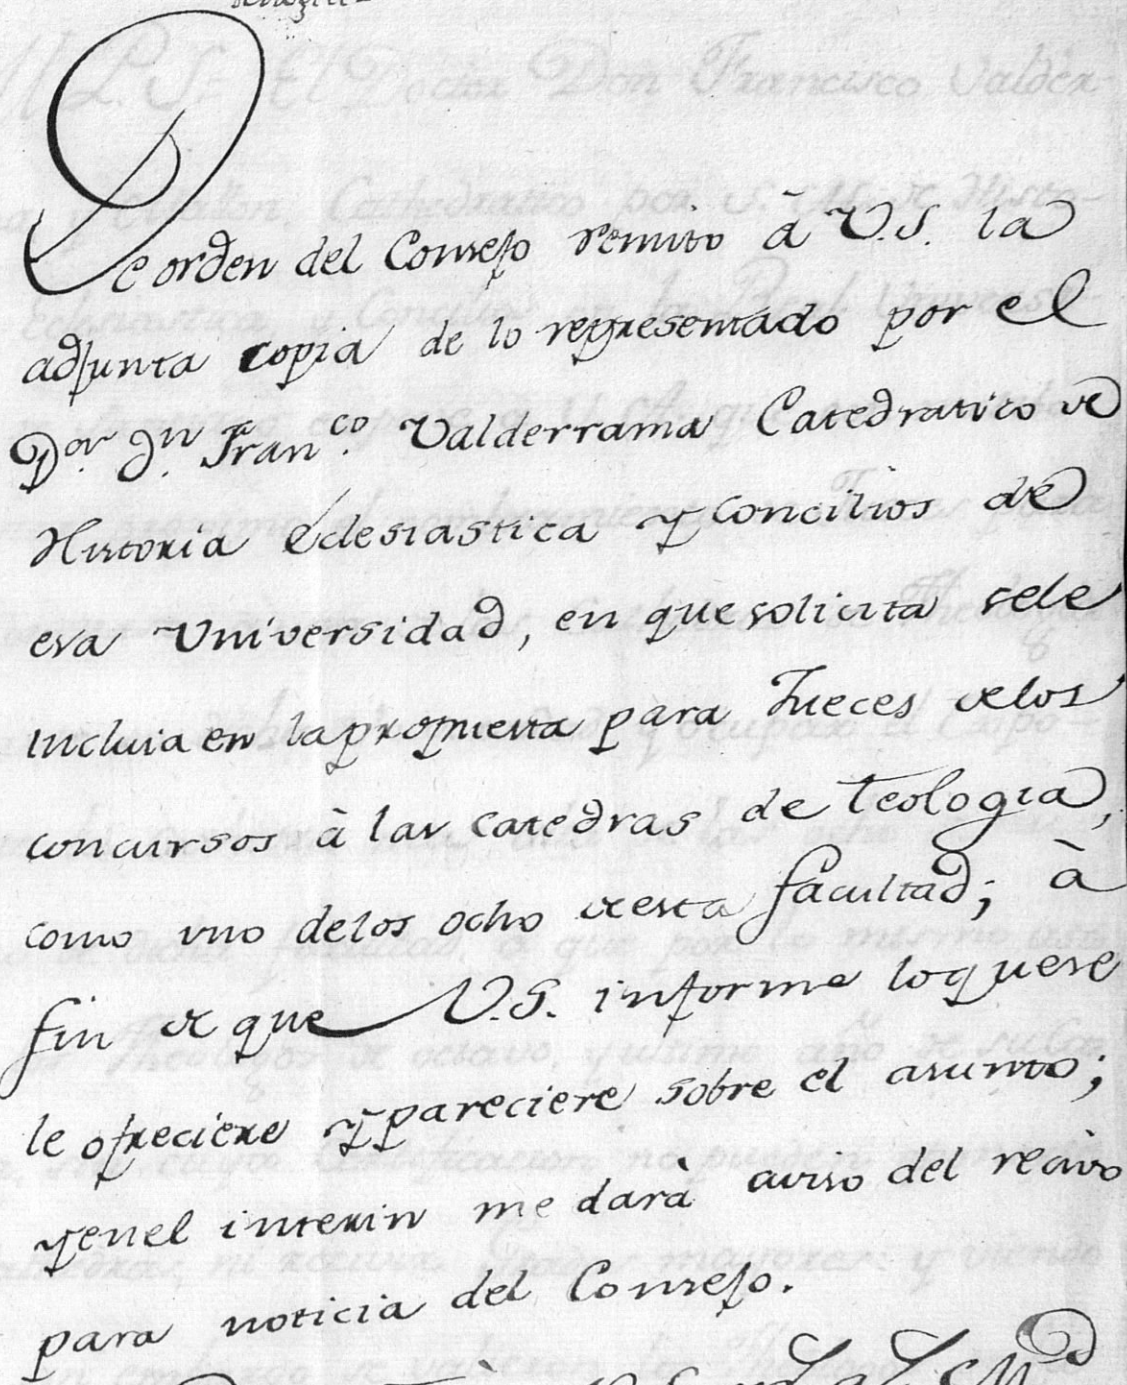 De orden del Consejo remito à V.S. la
adjunta copia de lo representado por el
Dor. Dn. Franco. Valderrama Catedratico de
Historia Eclesiastica y Concilios de
esa Universidad, en que solicita sele
incluia en la propuesta para Jueces delos
concursos à las catedras de Teologia,
como uno delos ocho de esta facultad; à
fin de que V.S. informe loquese
le ofreciere y pareciere sobre el asunto;
yenel interin me darà aviso del recivo
para noticia del Consejo.